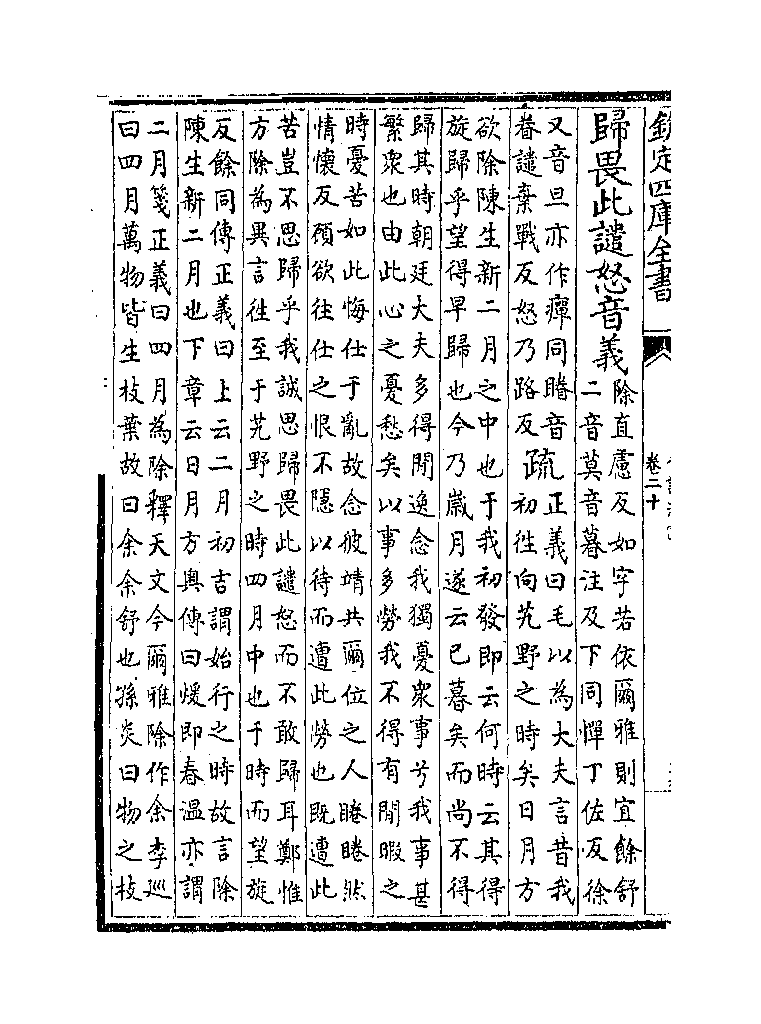 欽定四庫全書
卷二十
歸畏此譴怒音義
除直慮反如字若依爾雅則宜餘舒
二音莫音暮注及下同憚丁佐反徐
又音旦亦作癉同睠音
眷譴棄戰反怒乃路反
疏
正義曰毛以為大夫言昔我
初徃向艽野之時矣日月方
欲除陳生新二月之中也于我初發即云何時云其得
旋歸乎望得早歸也今乃歲月遂云已暮矣而尚不得
歸其時朝廷大夫多得閒逸念我獨憂衆事兮我事甚
繁衆也由此心之憂愁矣以事多勞我不得有閒暇之
時憂苦如此悔仕于亂故念彼靖共爾位之人睠睠然
情懷反顧欲往仕之恨不隱以待而遭此勞也既遭此
苦豈不思歸乎我誠思歸畏此譴怒而不敢歸耳鄭惟
方除為異言徃至于艽野之時四月中也于時而望旋
反餘同傳正義曰上云二月初吉謂始行之時故言除
陳生新二月也下章云日月方奧傳曰煖即春溫亦謂
二月箋正義曰四月為除釋天文今爾雅除作余李巡
曰四月萬物皆生枝葉故曰余余舒也孫炎曰物之枝